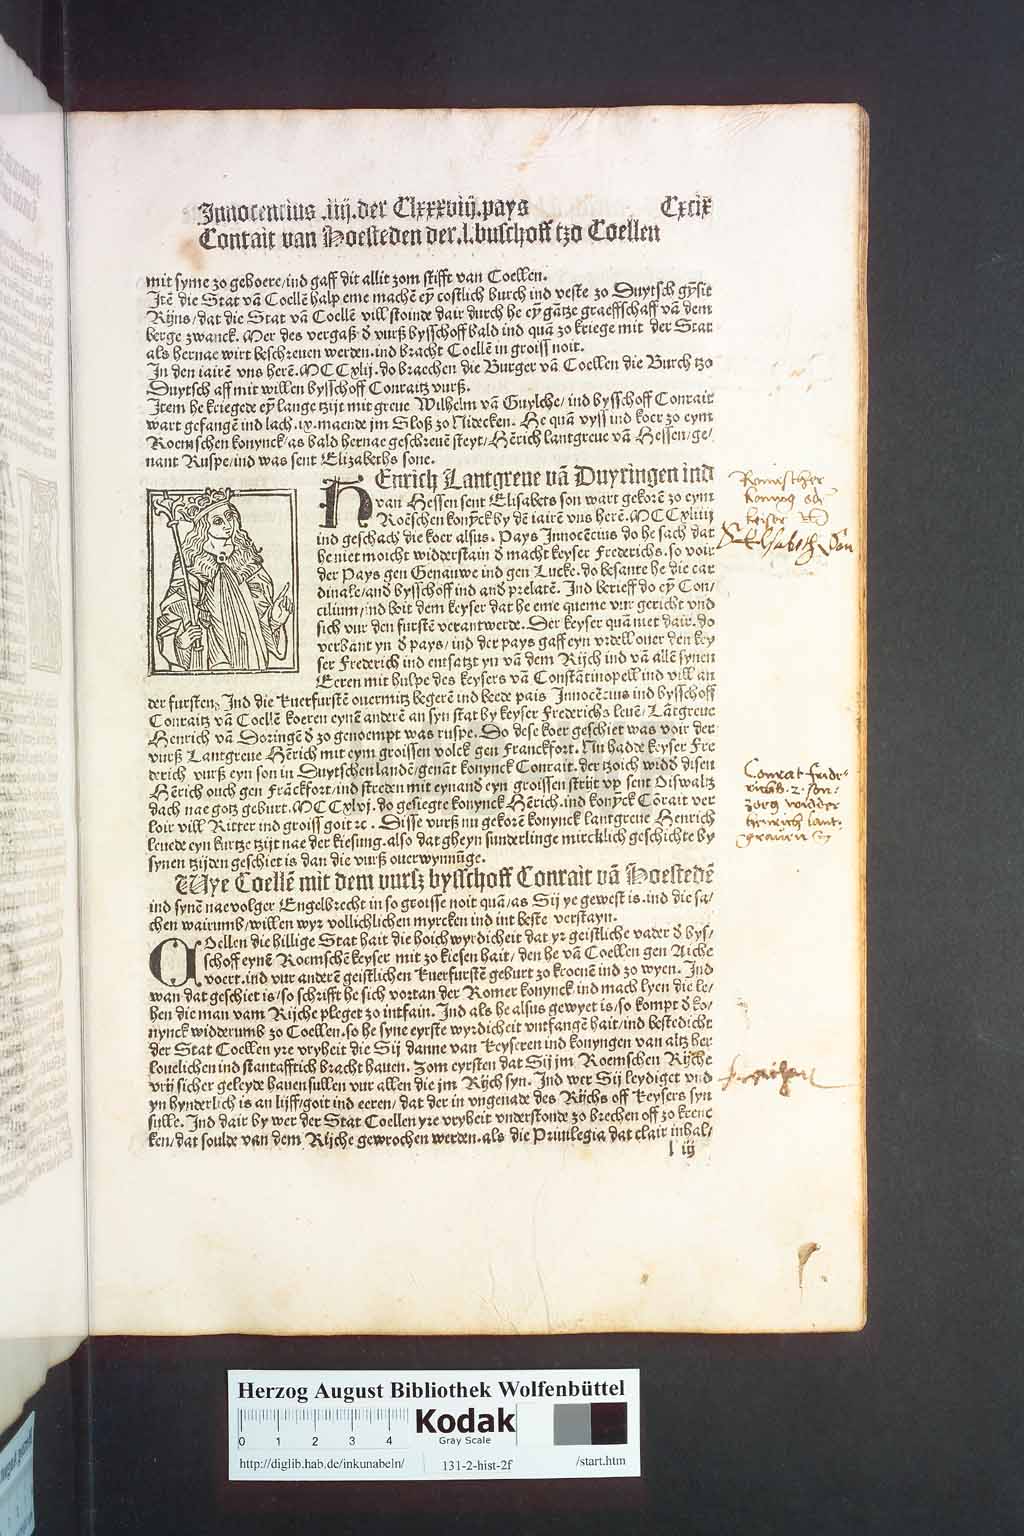 Innocencius .iiij. der Clxxxviij. pays Cxcix
Conrait van Hoesteden der .l. buschoff tzo Coellen
mit syme zo gehoere/ind gaff dit allit zom stifft van Coellen.
Itē die Stat vā Coellē halp eme machē eȳ costlich burch ind veste zo Duytsch gȳsit
Rijns/dat die Stat vā Coellē vill stoinde dair durch he eȳ gātze graeffschaff vā dem
berge zwanck. Mer des vergaß d̄ vurß bysschoff bald ind quā zo kriege mit der Stat
als hernae wirt beschreuen werden. ind bracht Coellē in groiss noit.
In den iairē vns herē. MCCxlij. do braechen die Burger vā Coellen die Burch tzo
Duytsch aff mit willen bysschoff Conraitz vurß.
Item he kriegede eȳ lange tzijt mit greue Wilhelm vā Guylche/ ind bysschoff Conrait
wart gefangē ind lach .ix. maende jm Sloß zo Nidecken. He quā vyss ind koer zo eym
Roemschen konynck/as bald hernae geschreuē steyt/Hērich lantgreue vā Hessen/ge/
nant Ruspe/ind was sent Elizabeths sone.
HEnrich Lantgreue vā Duyringen ind
van Hessen sent Elisabets son wart gekorē zo eym
Roēschen konȳck by dē iairē vns herē. MCCxliiij
ind geschach die koer alsus. Pays Innocēcius do he sach dat
he niet moicht widderstain d̄ macht keyser Frederichs. so voir
der Pays gen Genauwe ind gen Lucke. do besante he die car
dinale/and bysschoff ind and̄ prelatē. Ind berieff do eȳ Con/
cilium/ind boit dem keyser dat he eme queme vur gericht vnd
sich vur den furstē verantwerde. Der keyser quā niet dair. do
verbant yn d̄ pays/ ind der pays gaff eyn vrdell ouer den key
ser Frederich ind entsatzt yn vā dem Rijch ind vā allē synen
Eeren mit hulpe des keysers vā Constātinopell ind vill an
der fursten. Ind die kuerfurstē ouermitz begerē ind beede pais Innocēcius ind bysschoff
Conraitz vā Coellē koeren eynē anderē an syn stat by keyser Frederichs leuē/ Lātgreue
Henrich vā Doringē d̄ zo genoempt was ruspe. Do dese koer geschiet was voir der
vurß Lantgreue Hērich mit eym groissen volck gen Franckfort. Nu hadde keyser Fre
derich vurß eyn son in Duytschen landē/genāt konynck Conrait. der tzoich widd̄ disen
Hērich ouch gen Frāckfort/ind streden mit eynand̄ eyn groissen strijt vp sent Oiswaltz
dach nae gotz geburt. MCCxlvj. do gesiegte konynck Hērich. ind konȳck Cōrait ver
loir vill Ritter ind groiss goit ꝛc. Disse vurß nu gekorē konynck lantgreue Henrich
leuede eyn kurtze tzijt nae der kiesung. also dat gheyn sunderlinge mircklich geschichte by
synen tzijden geschiet is dan die vurß ouerwynnūge.
Wye Coellē mit dem vursz bysschoff Conrait vā Hoestedē
ind synē naevolger Engelbrecht in so groisse noit quā/as Sij ye gewest is. ind die sa/
chen wairumb/willen wyr vollichlichen myrcken ind int beste verstayn.
COellen die hillige Stat hait die hoichwyrdicheit dat yr geistliche vader d̄ bys/
schoff eynē Roemschē keyser mit zo kiesen hait/ den he vā Coellen gen Aiche
voert. ind vur anderē geistlichen kuerfurstē geburt zo kroenē ind zo wyen. Ind
wan dat geschiet is/so schrifft he sich vortan der Romer konynck ind mach lyen die le/
hen die man vam Rijche pleget zo intfain. Ind als he alsus gewyet is/so kompt d̄ ko/
nynck widderumb zo Coellen. so he syne eyrste wyrdicheit vntfangē hait/ind bestedicht
der Stat Coellen yre vryheit die Sij danne van keyseren ind konyngen van altz her
louelichen ind stantafftich bracht hauen. Zom eyrsten dat Sij im Roemschen Rijche
vrij sicher geleyde hauen sullen vur allen die jm Rijch syn. Ind wer Sij leydiget vnd
yn hynderlich is an lijff/goit ind eeren/ dat der in vngenade des Rijchs off keysers syn
sulle. Ind dair by wer der Stat Coellen yre vryheit vnderstonde zo brechen off zo krenc
ken/dat soulde van dem Rijche gewrochen werden. als die Priuilegia dat clair inhal/
l iij
Romischer
konnig
keiser
Conrat frider-
richs .2. son:
zorg widder
heinrich lant-
grauen
Herzog August Bibliothek Wolfenbüttel
0 1 2 3 4
Kodak
Gray Scale
http://diglib.hab.de/inkunabeln/ 131-2-hist-2f /start.htm